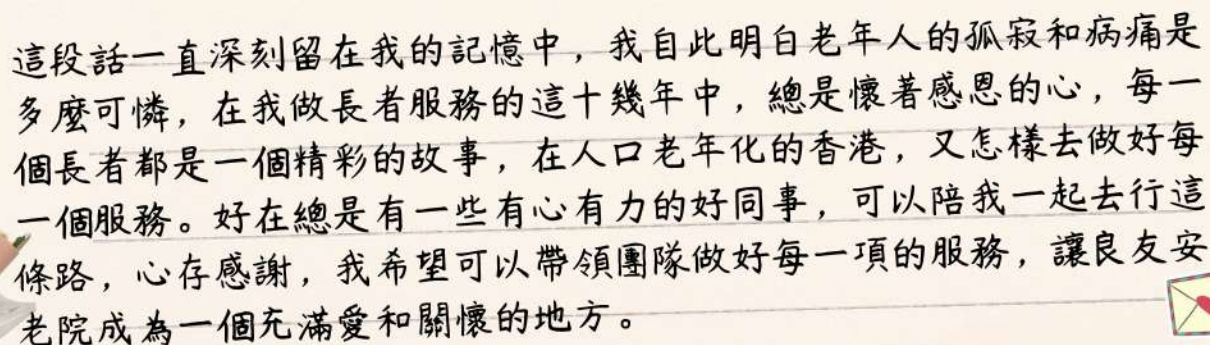 這段話一直深刻留在我的記憶中，我自此明白老年人的孤寂和病痛是
多麼可憐，在我做長者服務的這十幾年中，總是懷著感恩的心，每一
個長者都是一個精彩的故事，在人口老年化的香港，又怎樣去做好每
一個服務。好在總是有一些有心有力的好同事，可以陪我一起去行這
條路，心存感謝，我希望可以帶領團隊做好每一項的服務，讓良友安
老院成為一個充滿愛和關懷的地方。